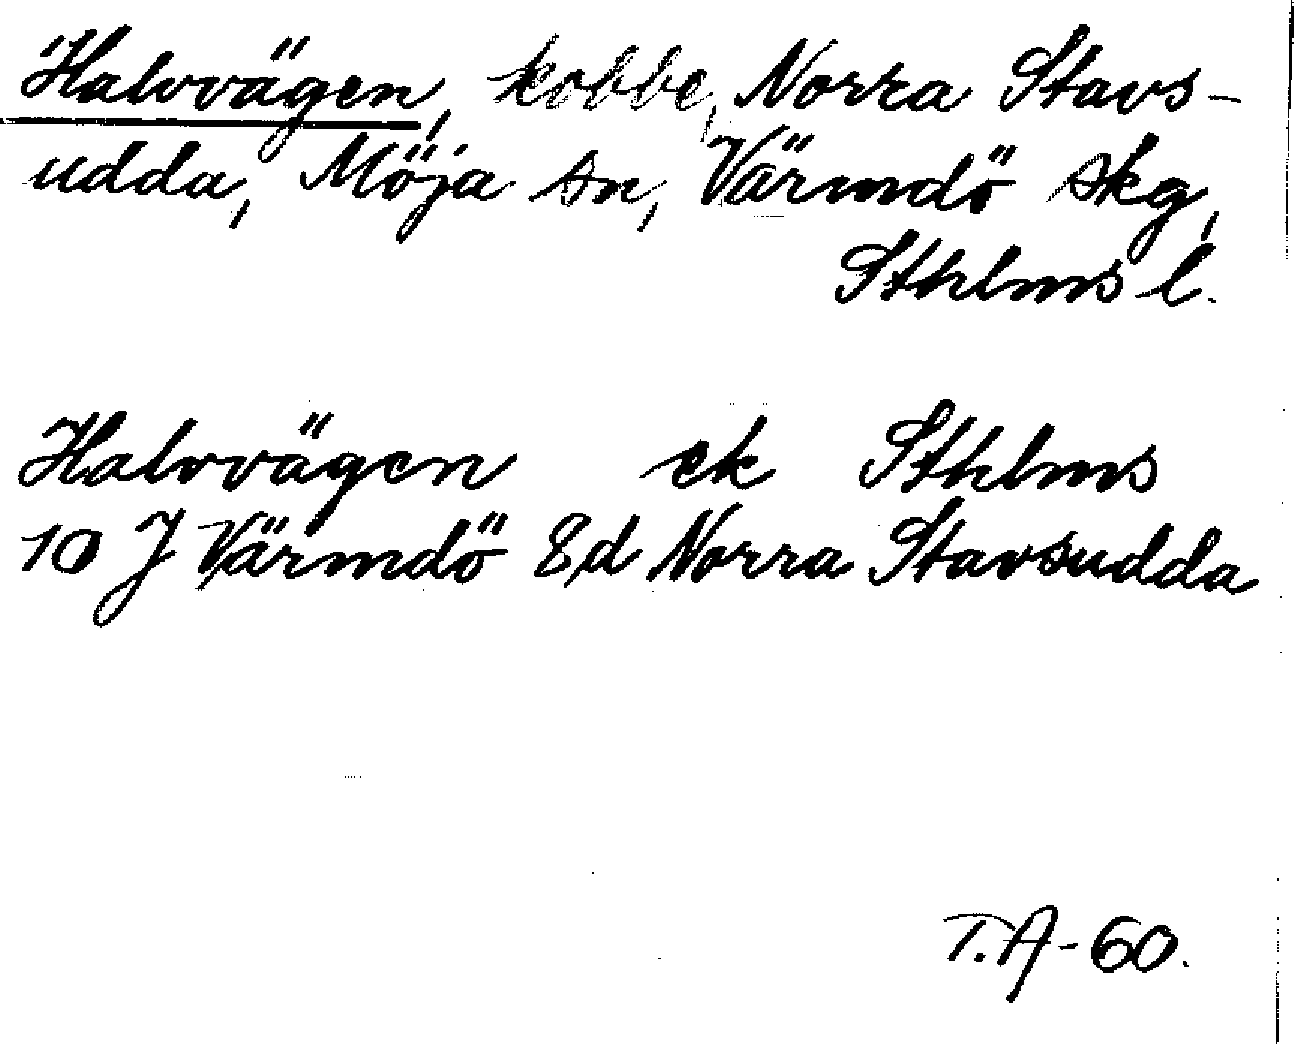 Halvvägen, kobbe, Norra Stavs-
udda, Möja sn, Värmdö skg,
Sthlms l.
Halvvägen ek Sthlms
10 J Värmdö 8d Norra Stavsudda
T.A-60.